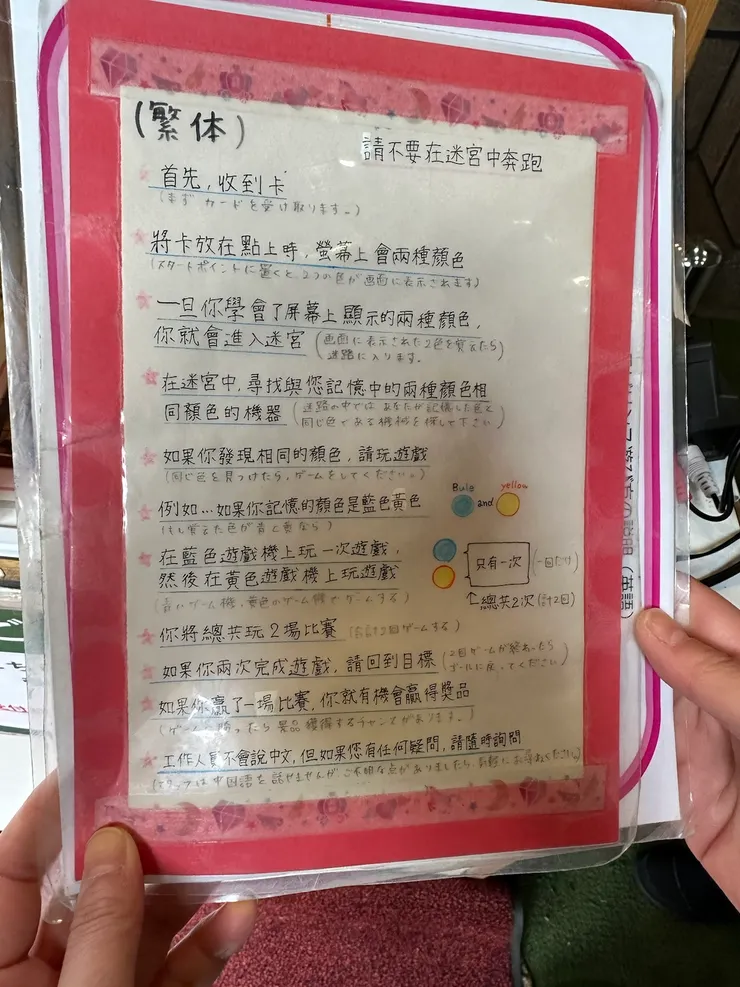 (繁体)
請不要在迷宮中奔跑
首先，收到卡
(まず カードを受け取ります。)
將卡放在點上時，螢幕上會兩種顏色
(スタートポイントに置くと、2つの色が画面に表示されます)
一旦你學會了屏幕上顯示的兩種顏色，
你就會進入迷宮 (画面に表示された2色を覚えたら
迷路に入ります。
在迷宮中，尋找與您記憶中的兩種顏色相
同顏色的機器 (迷路の中では あなたが記憶した色と
同じ色である機械を探して下さい)
如果你發現相同的顏色，請玩遊戲
(同じ色を見つけたら、ゲームをしてください。)
例如…如果你記憶的顏色是藍色黃色
(もし覚えた色が青と黄なら)
Bule and yellow
在藍色遊戲機上玩一次遊戲，
然後在黃色遊戲機上玩遊戲
(青いゲーム機、黄色のゲーム機でゲームする)
只有一次 (一回だけ)
↑總共2次(合計2回)
你將總共玩2場比賽 (合計2回ゲームする)
如果你兩次完成遊戲，請回到目標 (2回ゲームが終わったら
ゴールに戻ってください)
如果你贏了一場比賽，你就有機會贏得獎品
(ゲームに勝ったら景品獲得するチャンスがあります。)
工作人員不會說中文，但如果您有任何疑問，請隨時詢問
(スタッフは中国語を話せませんが、ご不明な点がありましたら、気軽にお尋ねください。)
(英語)